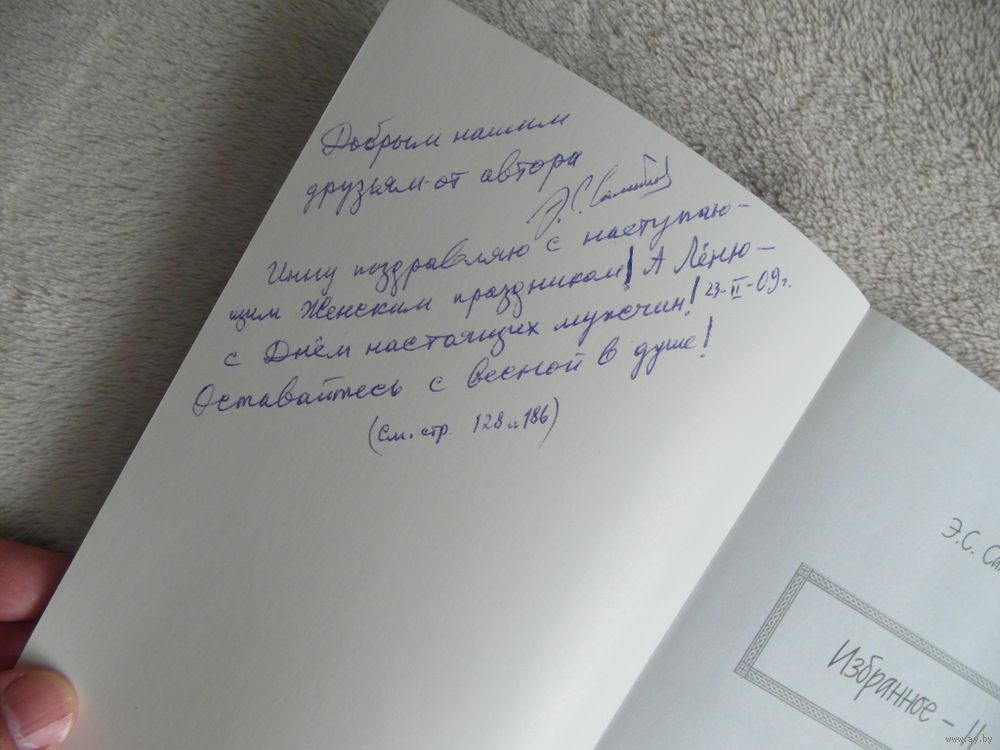 Добрым нашим
друзьям от автора
Э.С.
Инну поздравляю с наступаю-
щим Женским праздником! А Лёню –
с Днём настоящих мужчин! 23-II-09г.
Оставайтесь с весной в душе!
(см. стр. 128 и 186)
Э.С.
Избранное –
www.ay.by